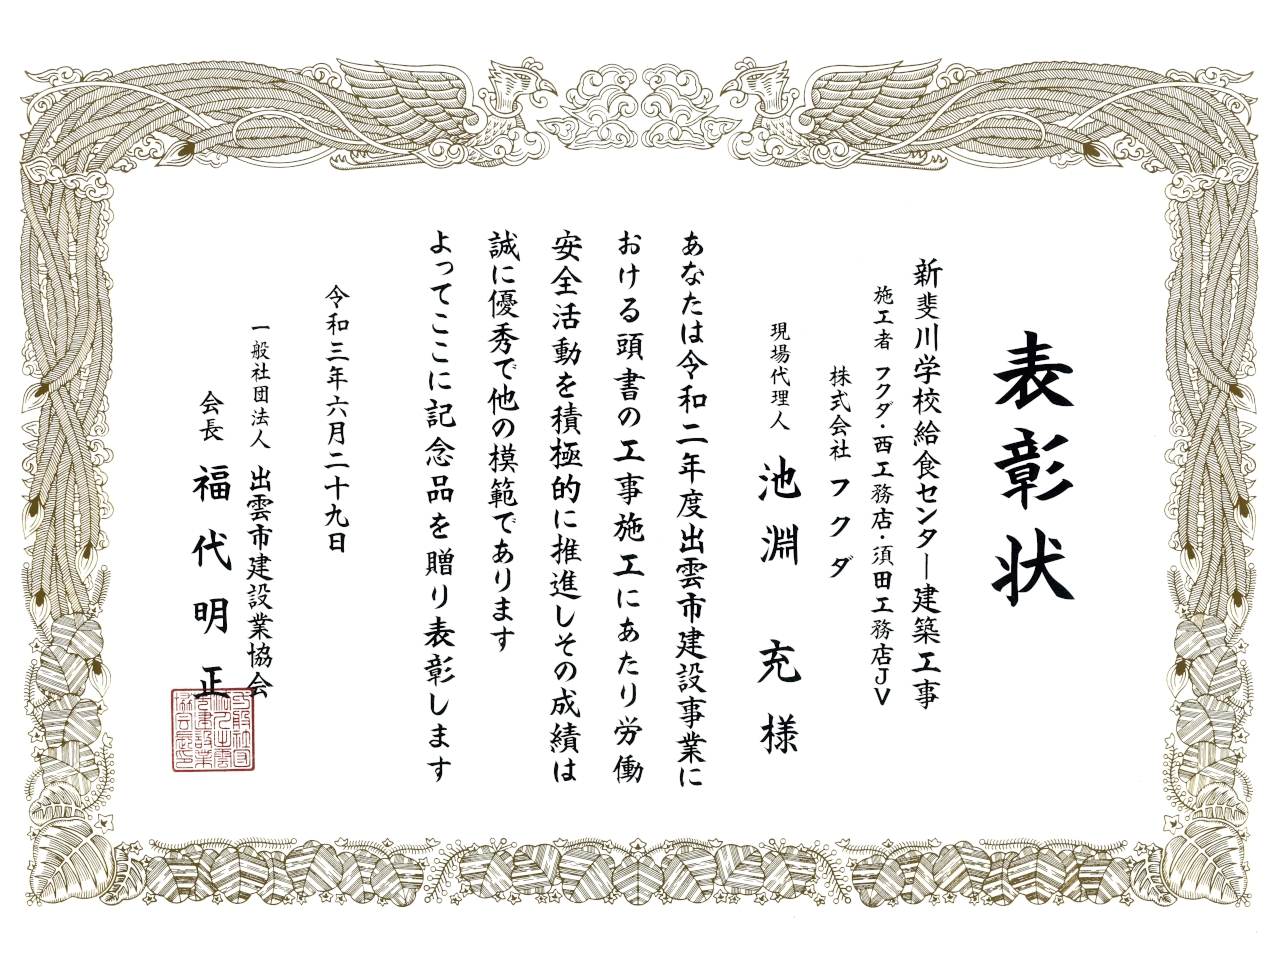 表彰状
新斐川学校給食センター建築工事
施工者 フクダ・西工務店・須田工務店JV
株式会社 フクダ
現場代理人 池淵 充 様
あなたは令和二年度出雲市建設事業に
おける頭書の工事施工にあたり労働
安全活動を積極的に推進しその成績は
誠に優秀で他の模範であります
よってここに記念品を贈り表彰します
令和三年六月二十九日
一般社団法人 出雲市建設業協会
会長 福代明正